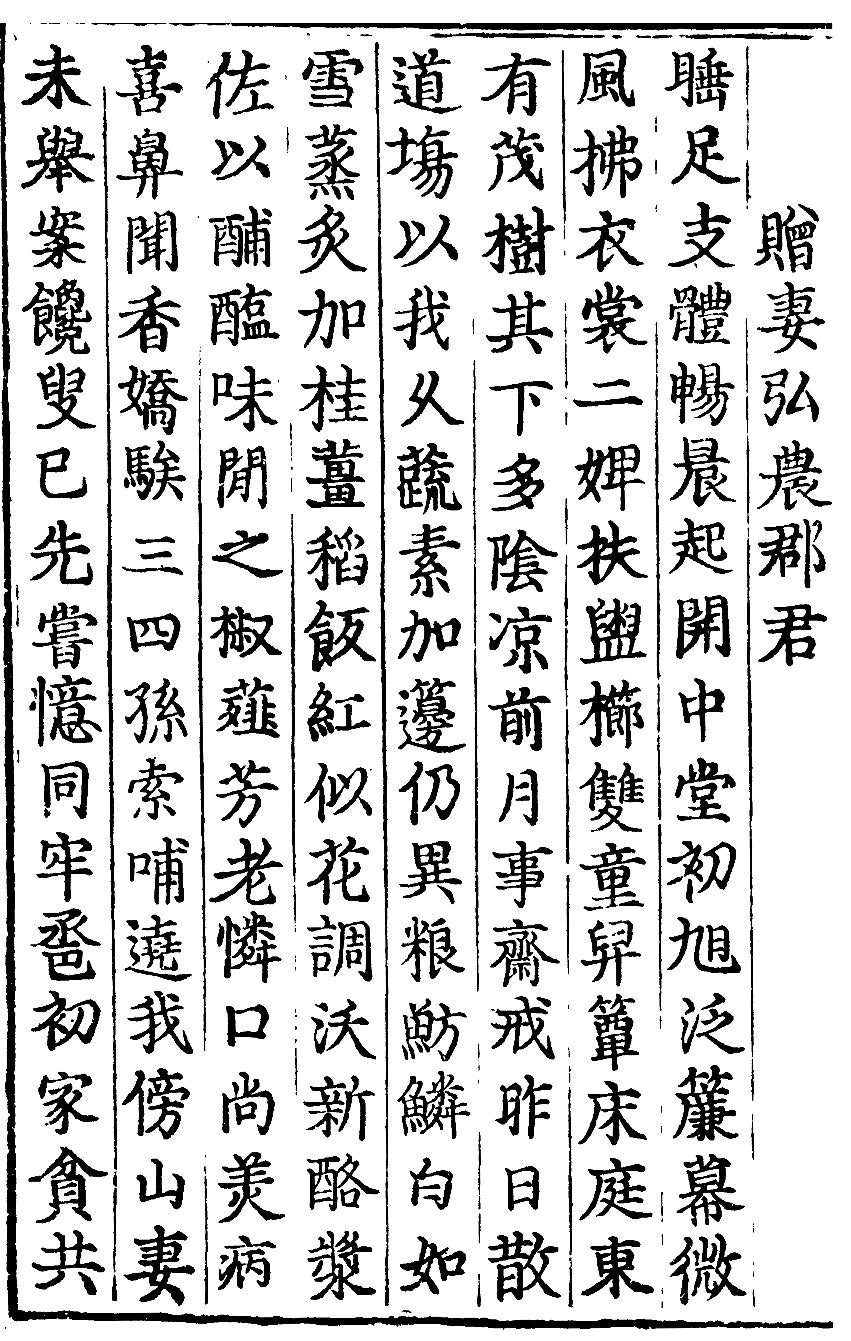 贈妻弘農郡君
睡足支體暢晨起開中堂初旭泛簾幕微
風拂衣裳二婢扶盥櫛雙童舁簟床庭東
有茂樹其下多陰凉前月事齋戒昨日散
道塲以我久蔬素加籩仍異粮魴鱗白如
雪蒸炙加桂薑稻飯紅似花調沃新酪漿
佐以酺醢味間之椒薤芳老憐口尚美病
喜鼻聞香嬌騃三四孫索哺遶我傍山妻
未舉案饞叟已先嘗憶同牢巹初家貧共